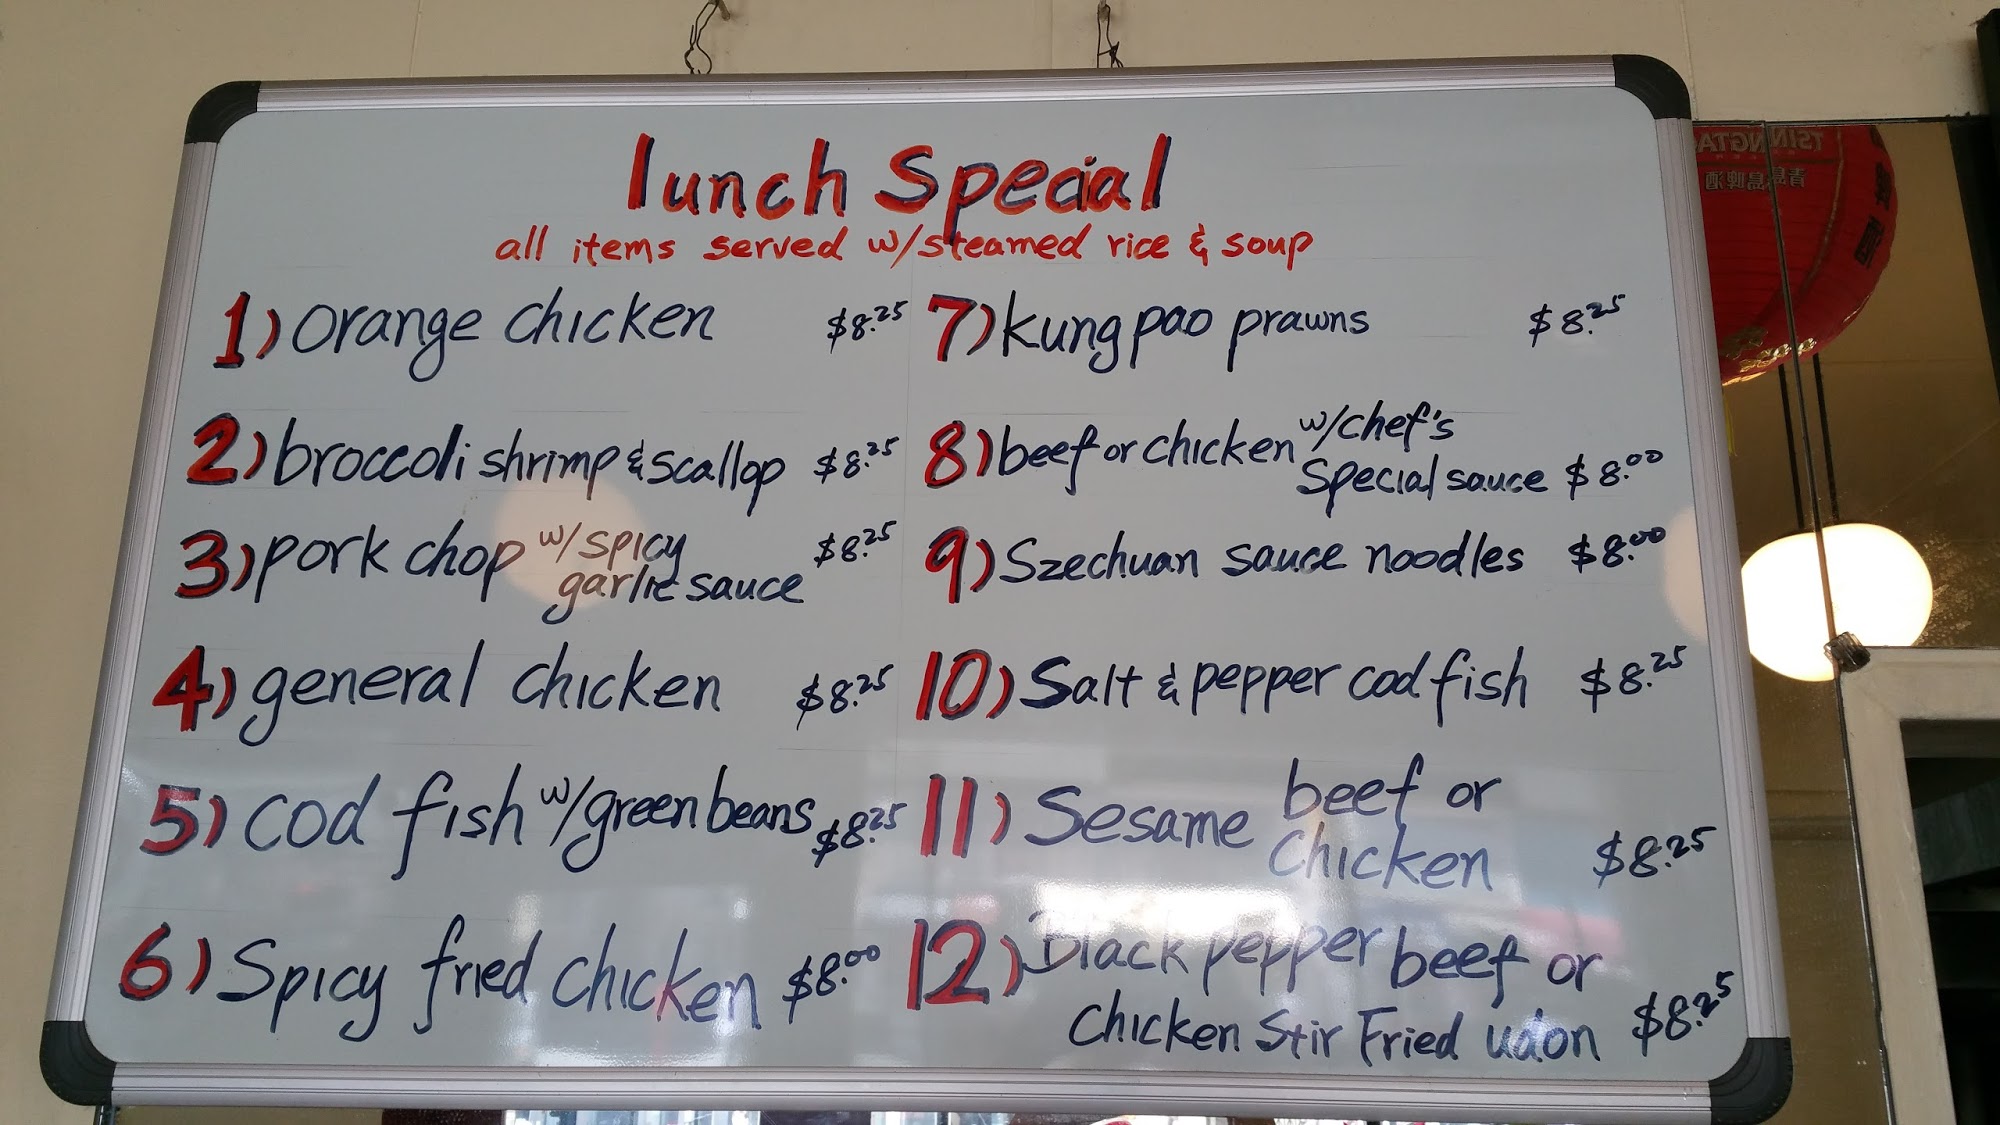 lunch Special
all items served w/steamed rice & soup
1) Orange chicken $8.25
2) broccoli shrimp & scallop $8.25
3) pork chop w/spicy
garlic sauce $8.25
4) general chicken $8.25
5) Cod fish w/green beans $8.25
6) Spicy fried chicken $8.00
7) kung pao prawns $8.25
8) beef or chicken w/chef's
Special sauce $8.00
9) Szechuan sauce noodles $8.00
10) Salt & pepper cod fish $8.25
11) Sesame beef or
Chicken $8.25
12) Black pepper beef or
Chicken Stir Fried udon $8.25
TSINGTAO
青島啤酒